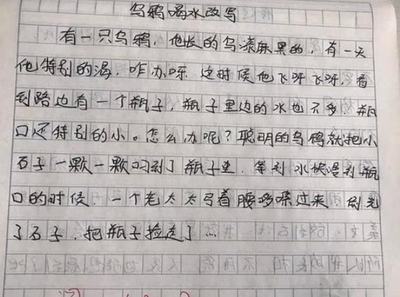 乌鸦喝水改写
有一只乌鸦，他长的乌漆麻黑的，有一天
他特别的渴，咋办呀 这时候他飞呀飞呀，看
到路边有一个瓶子，瓶子里边的水也不多 瓶
口还特别的小。怎么办呢？聪明的乌鸦就把小
石子一颗一颗叼到了瓶子里，等到水快漫到瓶
口的时候 一个老太太弓着腰哆嗦过来 倒光
了石子，把瓶子捡走了